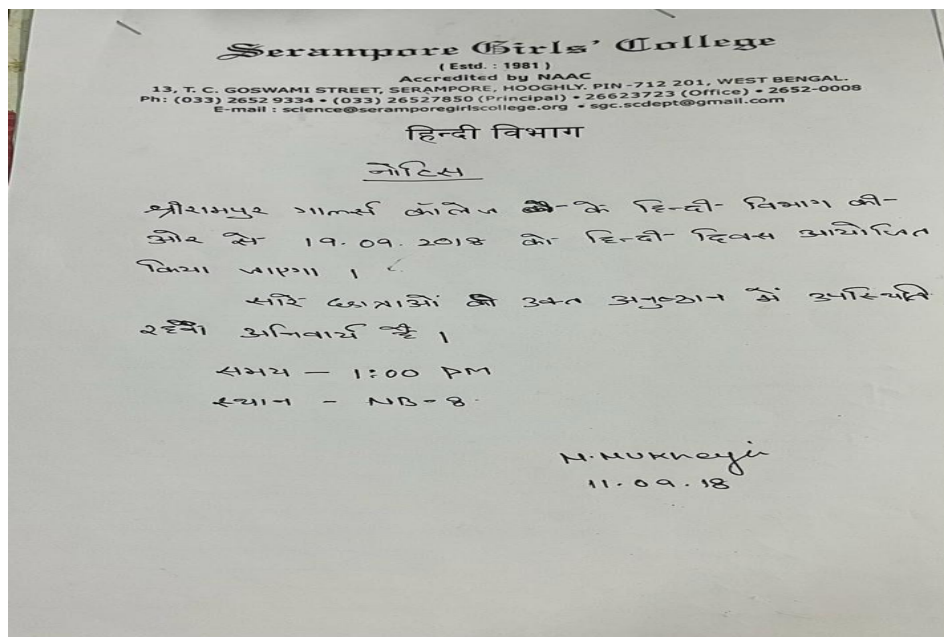 Serampore Girls' College
( Estd. : 1981 )
Accredited by NAAC
13, T. C. GOSWAMI STREET, SERAMPORE, HOOGHLY. PIN -712 201, WEST BENGAL.
Ph: (033) 2652 9334 • (033) 26527850 (Principal) • 26623723 (Office) • 2652-0008
E-mail : science@seramporegirlscollege.org • sgc.scdept@gmail.com
हिन्दी विभाग
नोटिस
श्रीरामपुर गार्ल्स कॉलेज के हिन्दी विभाग की
ओर से 19.09.2018 को हिन्दी दिवस आयोजित
किया जाएगा ।
सारे छात्राओं की उक्त अनुष्ठान में उपस्थिति
अनिवार्य है ।
समय – 1:00 PM
स्थान – NB-8.
N. Mukherjee
11.09.18